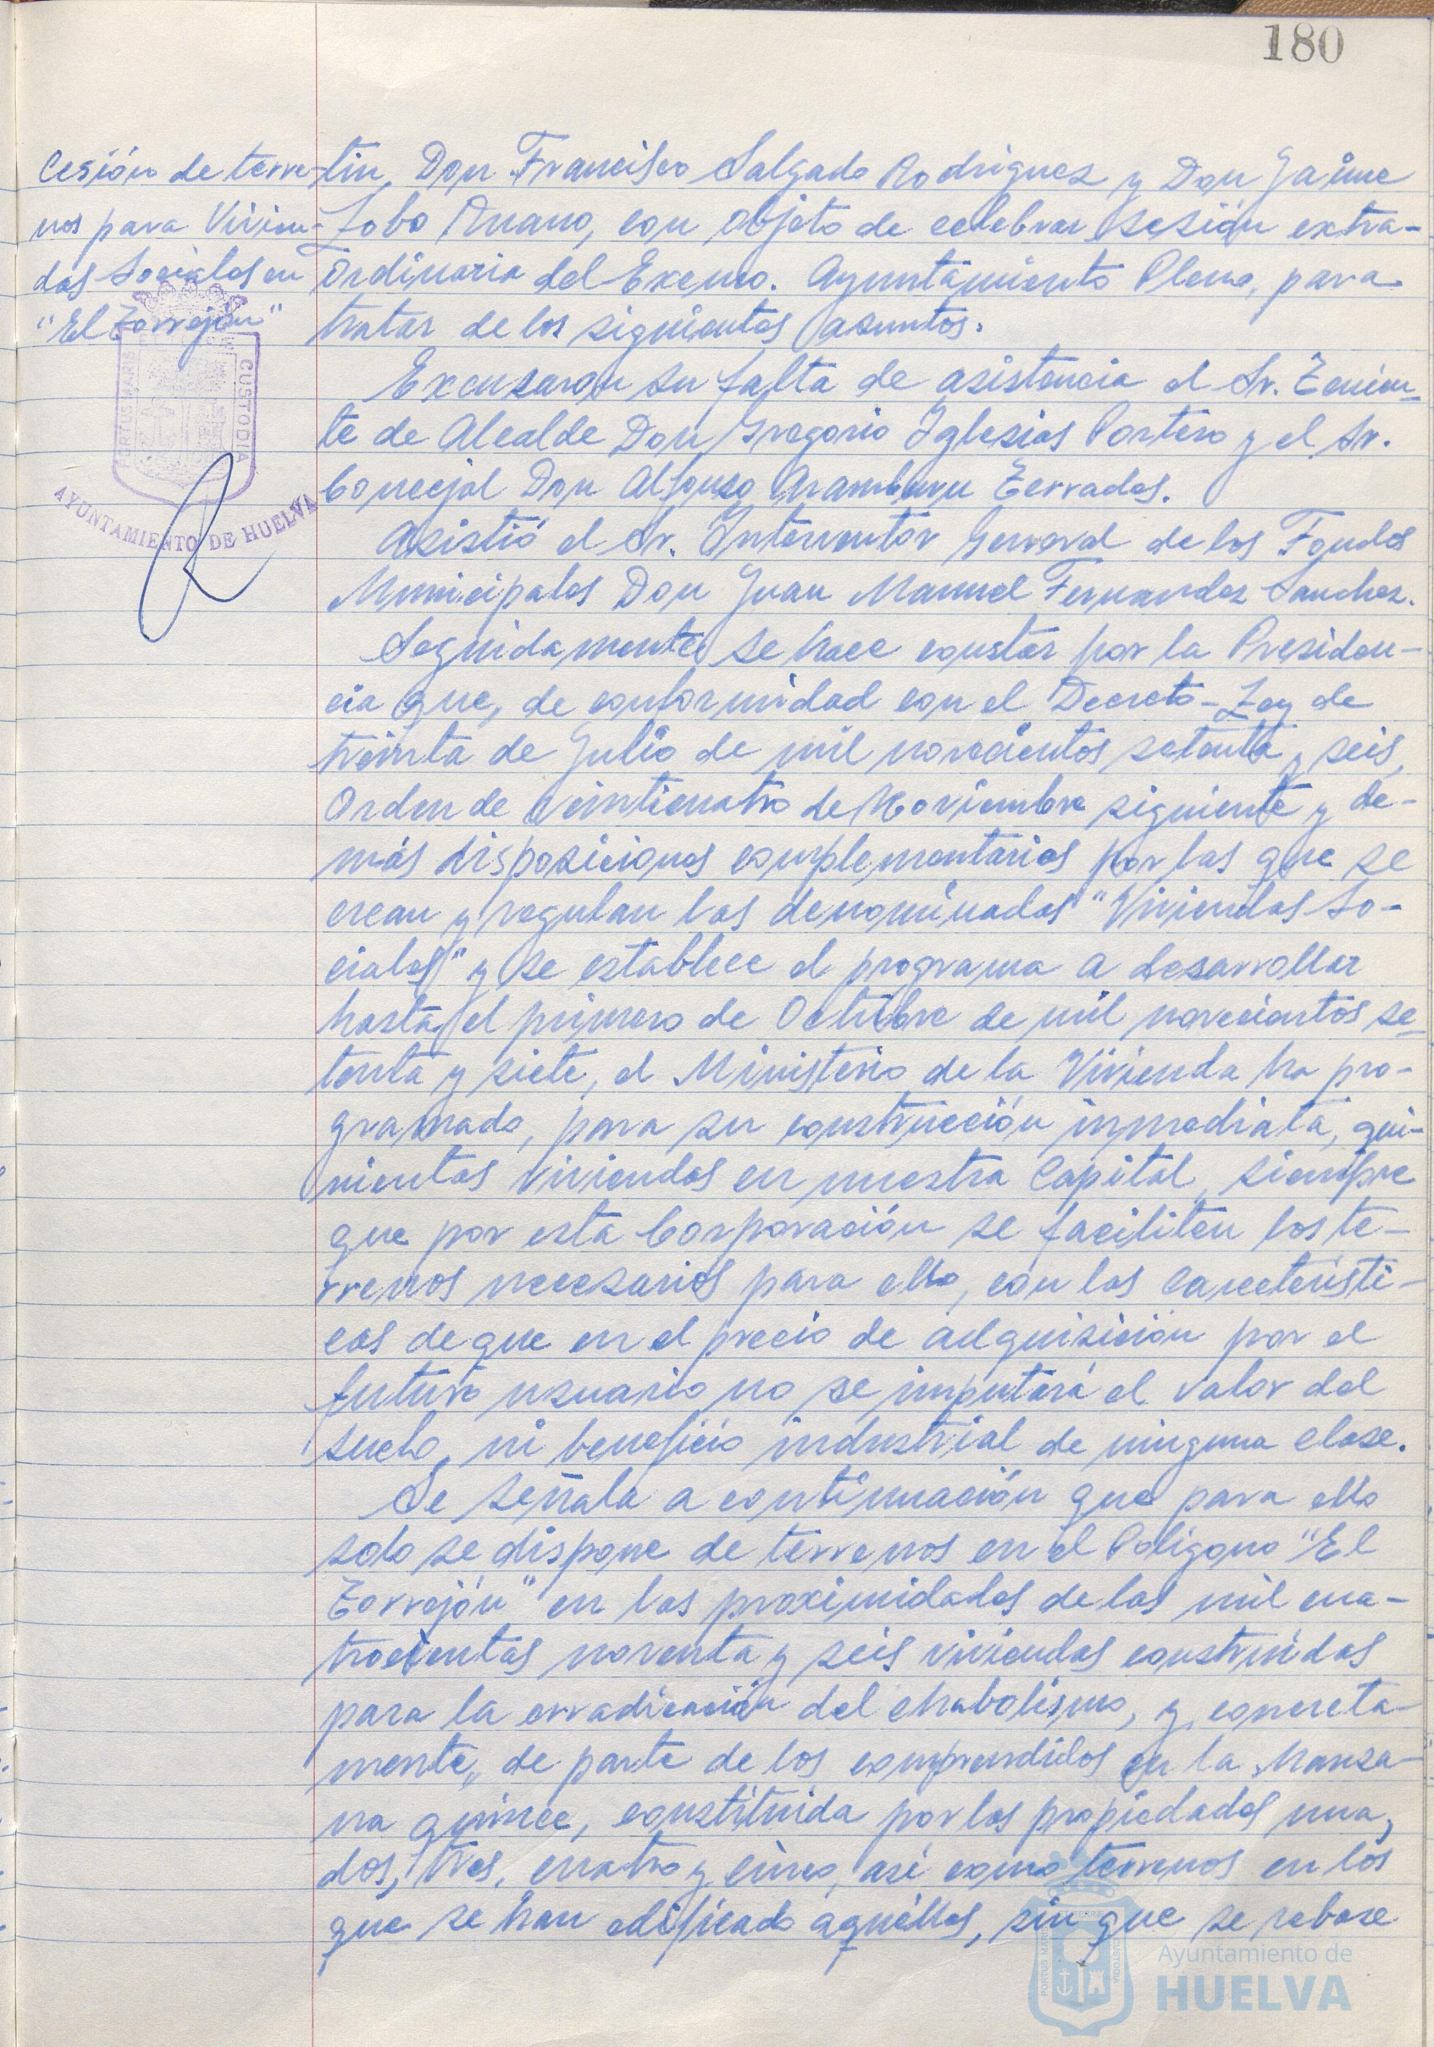 180
Cesión de terre-
nos para Vivien-
das Sociales en
"El Torrejón"
PORTUS MARIS
CUSTODIA
AYUNTAMIENTO DE HUELVA
tín, Don Francisco Salgado Rodriguez y Don Jaime
Lobo, con objeto de celebrar sesión extra-
ordinaria del Excmo. Ayuntamiento Pleno, para
tratar de los siguientes asuntos.
Excusaron su falta de asistencia el Sr. Tenien-
te de Alcalde Don Gregorio Iglesias Portero y el Sr.
Concejal Don Alfonso Aramburu Terrades.
Asistió el Sr. Interventor General de los Fondos
Municipales Don Juan Manuel Fernandez Sanchez.
Seguidamente se hace constar por la Presiden-
cia que, de conformidad con el Decreto-Ley de
treinta de Julio de mil novecientos setenta y seis,
Orden de veinticuatro de Noviembre siguiente y de-
más disposiciones complementarias por las que se
crean y regulan las denominadas "Viviendas So-
ciales" y se establece el programa a desarrollar
hasta el primero de Octubre de mil novecientos se-
tenta y siete, el Ministerio de la Vivienda ha pro-
gramado, para su construcción inmediata, qui-
nientas viviendas en nuestra Capital, siempre
que por esta Corporación se faciliten los te-
rrenos necesarios para ello, con las característi-
cas de que en el precio de adquisición por el
futuro usuario no se imputará el valor del
suelo, ni beneficio industrial de ninguna clase.
Se señala a continuación que para ello
solo se dispone de terrenos en el Poligono "El
Torrejón" en las proximidades de las mil cua-
trocientas noventa y seis viviendas construidas
para la erradicación del chabolismo, y, concreta-
mente, de parte de los comprendidos en la Manza-
na quince, constituida por las propiedades una,
dos, tres, cuatro y cinco, así como terrenos en los
que se han edificado aquéllas, sin que se rebase
PORTUS MARIS
CUSTODIA
Ayuntamiento de
HUELVA